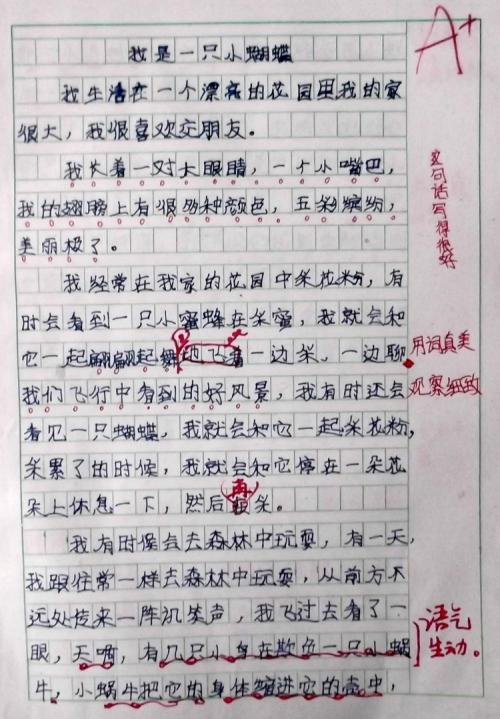 我是一只小蝴蝶
A+
我生活在一个漂亮的花园里我的家
很大，我很喜欢交朋友。
我长着一对大眼睛，一个小嘴巴，
我的翅膀上有很多种颜色，五彩缤纷，
美丽极了。
这句话写得很好
我经常在我家的花园中采花粉，有
时会看到一只小蜜蜂在采蜜，我就会和
它一起翩翩起舞地飞着一边采，一边聊
用词真美
我们飞行中看到的好风景，我有时还会
观察细致
看见一只蝴蝶，我就会和它一起采花粉，
采累了的时候，我就会和它停在一朵花
朵上休息一下，然后再采。
我有时候会去森林中玩耍，有一天，
我跟往常一样去森林中玩耍，从前方不
远处传来一阵讥笑声，我飞过去看了一
眼，天啊，有几只小身在欺负一只小蜗
语气
生动。
牛，小蜗牛把它的身体缩进它的壳中，